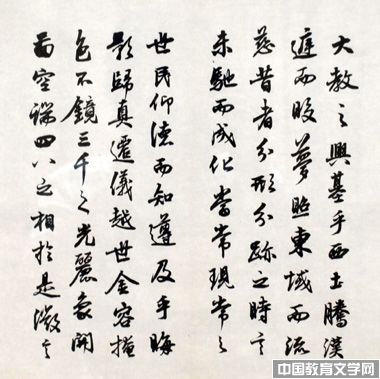 大教之興基乎西土騰漢
庭而皎夢照東域而流
慈昔者分形分跡之時言
未馳而成化當常現常之
世民仰德而知遵及乎晦
影歸真遷儀越世金容掩
色不鏡三千之光麗象開
圖空端四八之相於是微言
中国教育文学网